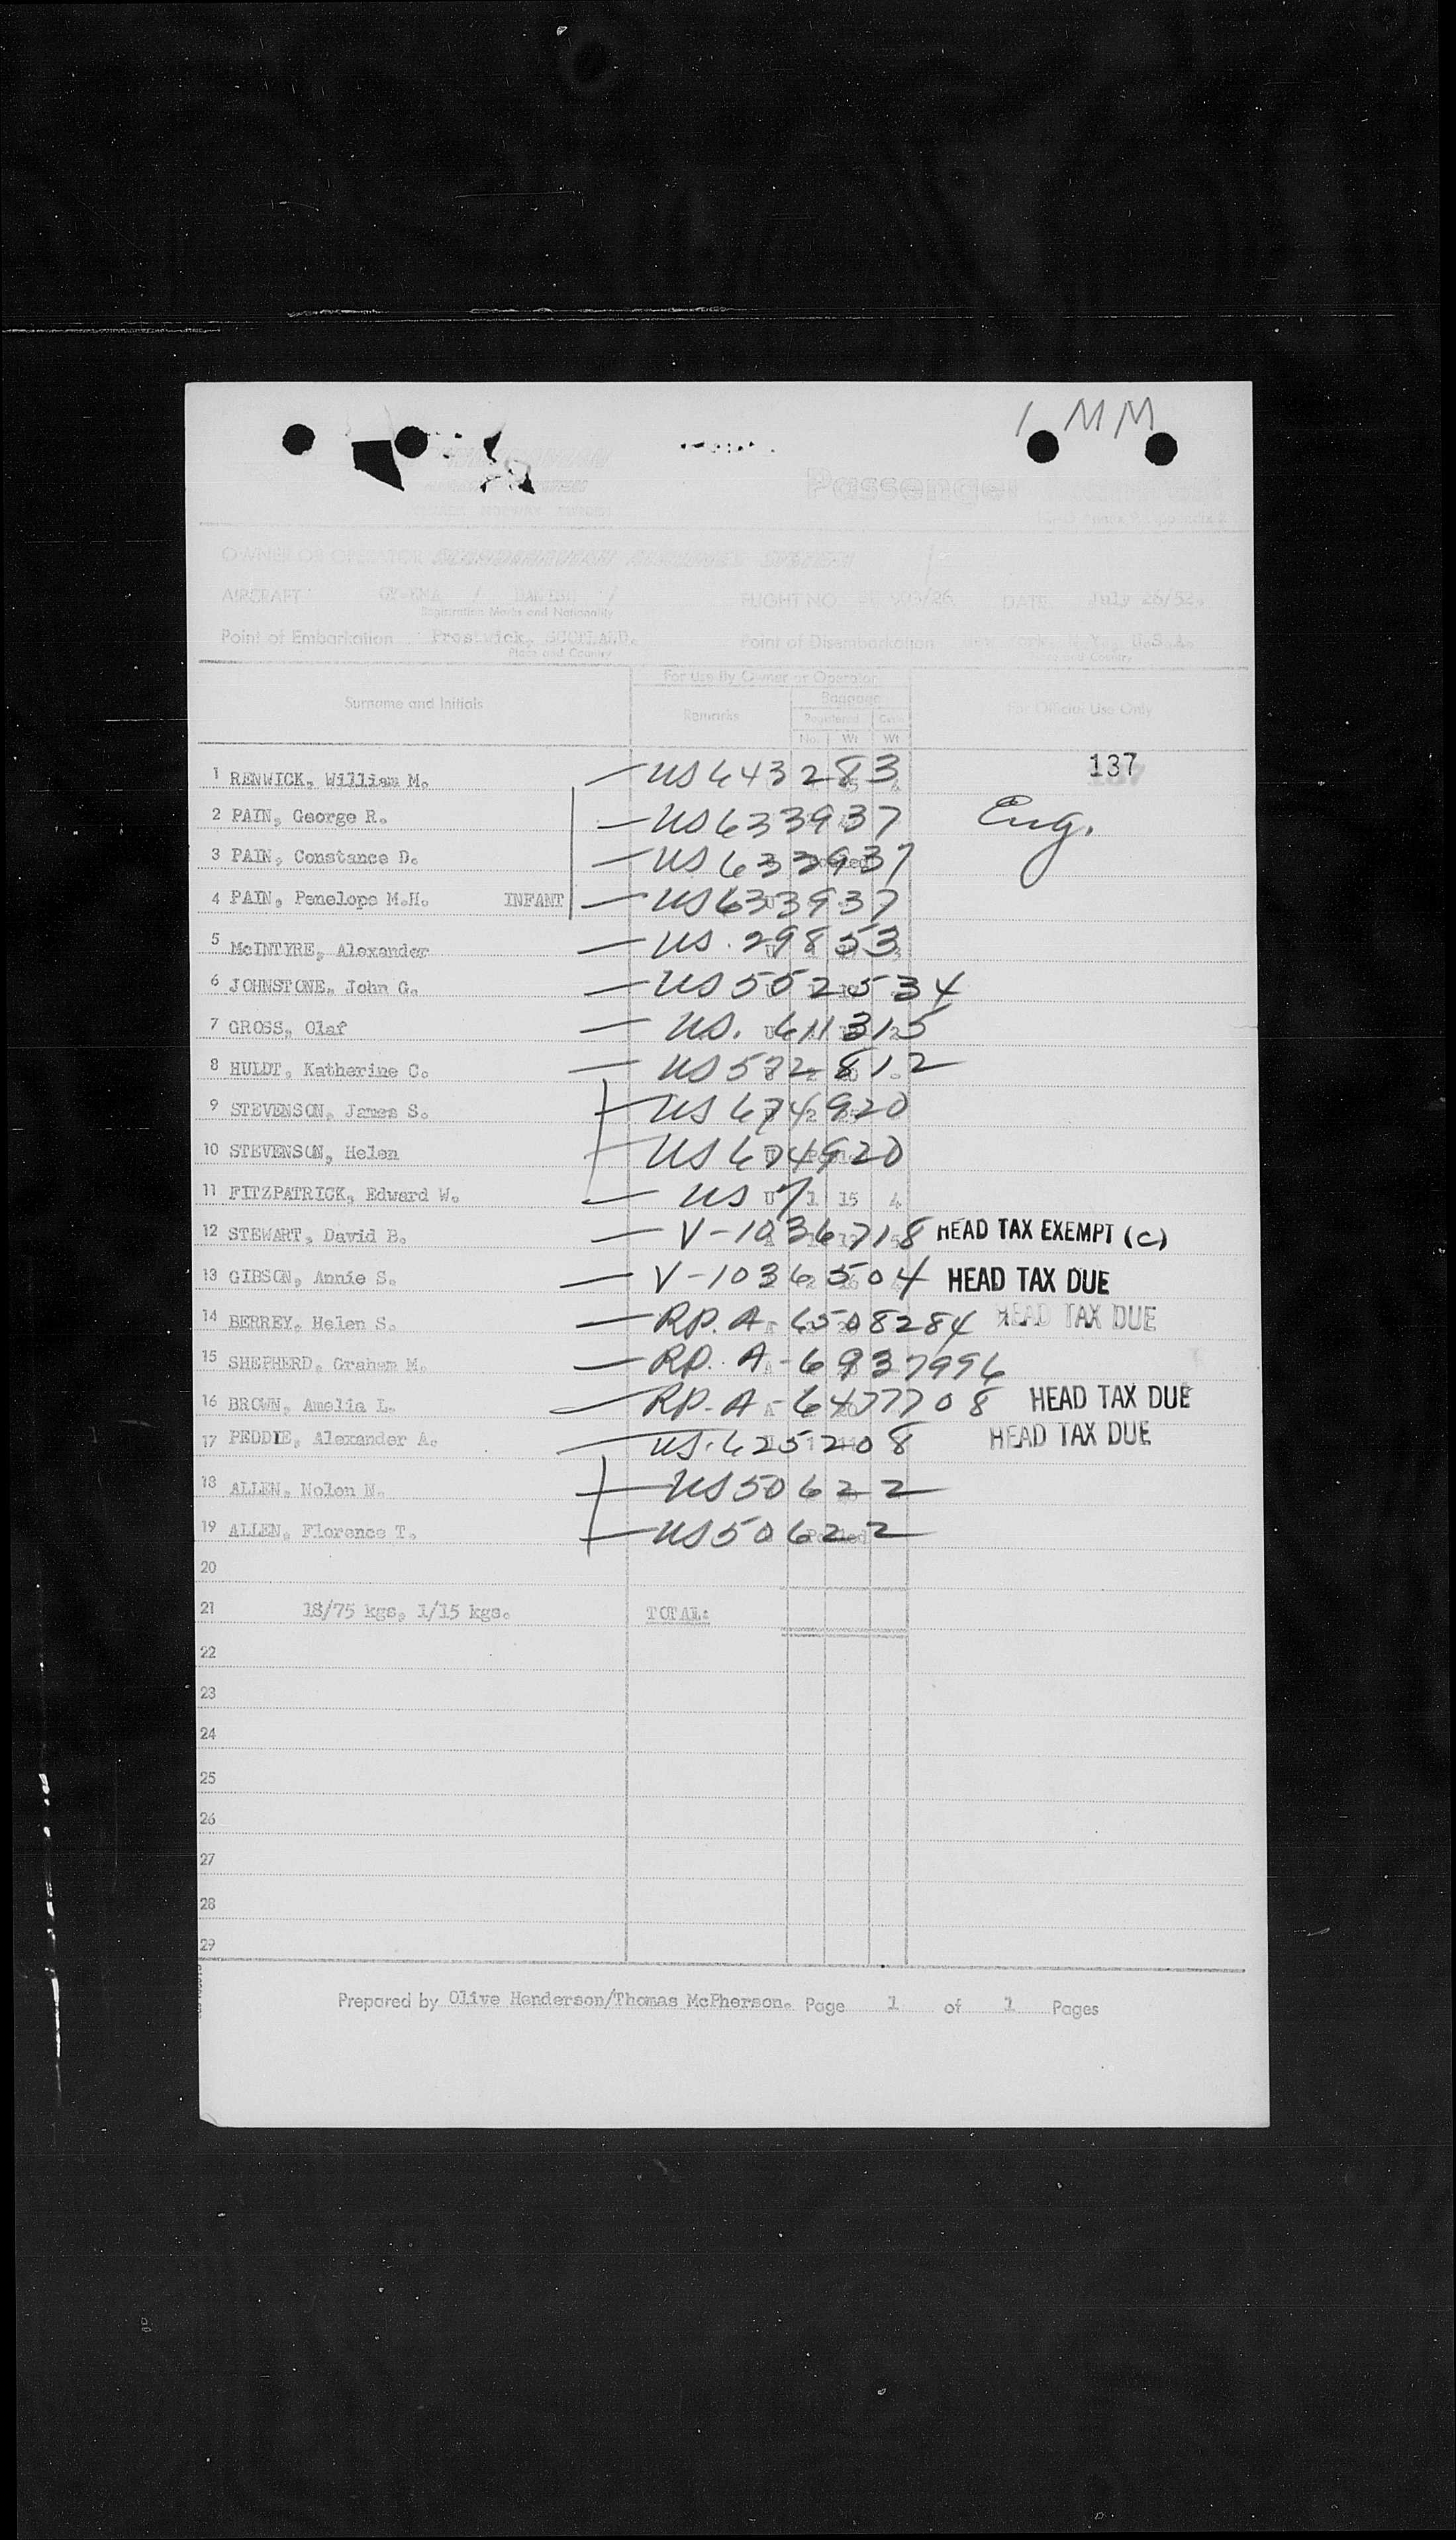 1 MM
Passenger
OWNER OR OPERATOR SCANDINAVIAN AIRLINES SYSTEM
AIRCRAFT / DANISH / FLIGHT NO. DATE July 26/52.
Registration Marks and Nationality
Point of Embarkation Prestwick, SCOTLAND. Point of Disembarkation New York, N.Y., U.S.A.
Place and Country Place and Country
For Use By Owner or Operator
Surname and Initials Remarks Baggage For Official Use Only
Registered Cabin
No. Wt Wt
137
1 RENWICK, William M. — US 643283
2 PAIN, George R. — US 633937 Eng.
3 PAIN, Constance D. — US 633937
4 PAIN, Penelope M.H. INFANT — US 633937
5 McINTYRE, Alexander — US. 29853
6 JOHNSTONE, John G. — US 552534
7 GROSS, Olaf — US. 611315
8 HULDT, Katherine C. — US 572812
9 STEVENSON, James S. — US 674920
10 STEVENSON, Helen — US 674920
11 FITZPATRICK, Edward W. — US U 1 15 4
12 STEWART, David B. — V-1036718 HEAD TAX EXEMPT (C)
13 GIBSON, Annie S. — V-1036504 HEAD TAX DUE
14 BERREY, Helen S. — RP. A-6508284 HEAD TAX DUE
15 SHEPHERD, Graham M. — RP. A-6937996
16 BROWN, Amelia L. — RP. A-6477708 HEAD TAX DUE
17 PEDDIE, Alexander A. — US. 625208 HEAD TAX DUE
18 ALLEN, Nolen N. — US 50622
19 ALLEN, Florence T. — US 50622
20
21 18/75 kgs, 1/15 kgs. TOTAL:
22
23
24
25
26
27
28
29
Prepared by Olive Henderson/Thomas McPherson. Page 1 of 1 Pages